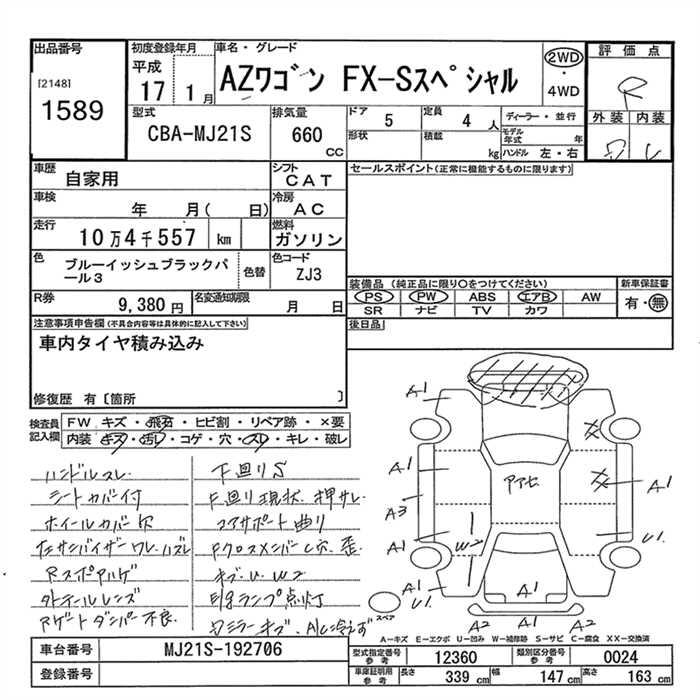 出品番号
[2148]
1589
初度登録年月
平成
17 1月
車名・グレード
AZワゴン FX-Sスペシャル
2WD
・
4WD
評価点
R
外装 内装
型式
CBA-MJ21S
排気量
660
CC
ドア
5
定員
4 人
形状
積載
kg
ディーラー・並行
モデル年式 年
ハンドル 左・右
車歴
自家用
シフト
CAT
車検
年 月( 日)
冷房
AC
走行
10万4千557 km
燃料
ガソリン
色
ブルーイッシュブラックパール3
色替
色コード
ZJ3
R券
9,380円
名変通知期限
月 日
セールスポイント(正常に機能するものに限ります)
装備品 (純正品に限り○をつけてください)
PS PW ABS エアB AW
SR ナビ TV カワ
新車保証書
有・無
後日品
注意事項申告欄(不具合内容等は具体的に記入して下さい)
車内タイヤ積み込み
修復歴 有〔箇所 〕
検査員記入欄
FW キズ・飛石・ヒビ割・リペア跡・×要
内装 キズ・汚レ・コゲ・穴・スレ・キレ・破レ
ハンドルスレ
シートカバー付
ホイールカバー欠
左サンバイザーワレ、ハズレ
外テールレンズ
Rゲートダンパー不良
下廻りS
F廻り現状 押サレ
コアサポート曲り
FクロスメンバーC穴、歪
キズ、U、W2
A/C冷えず
A1
A1
A3
A1
A1
U1
アアセ
W2
A1
A1
U1
A1
A2
A2
スペア
A-キズ E-エクボ U-凹み W-補修跡 S-サビ C-腐食 XX-交換済
車台番号
MJ21S-192706
登録番号
型式指定番号 参考
12360
類別区分番号 参考
0024
車庫証明用 参考
長さ 339 cm
幅 147 cm
高さ 163 cm